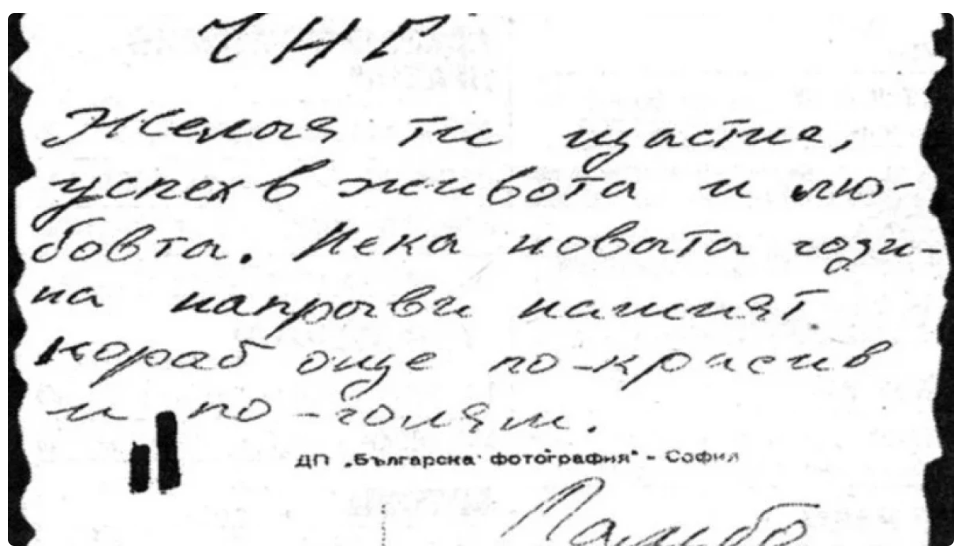 ЧНГ
Желая ти щастие,
успех в живота и лю-
бовта. Нека новата годи-
на направи нашият
кораб още по-красив
и по-голям.
ДП „Българска фотография" - София